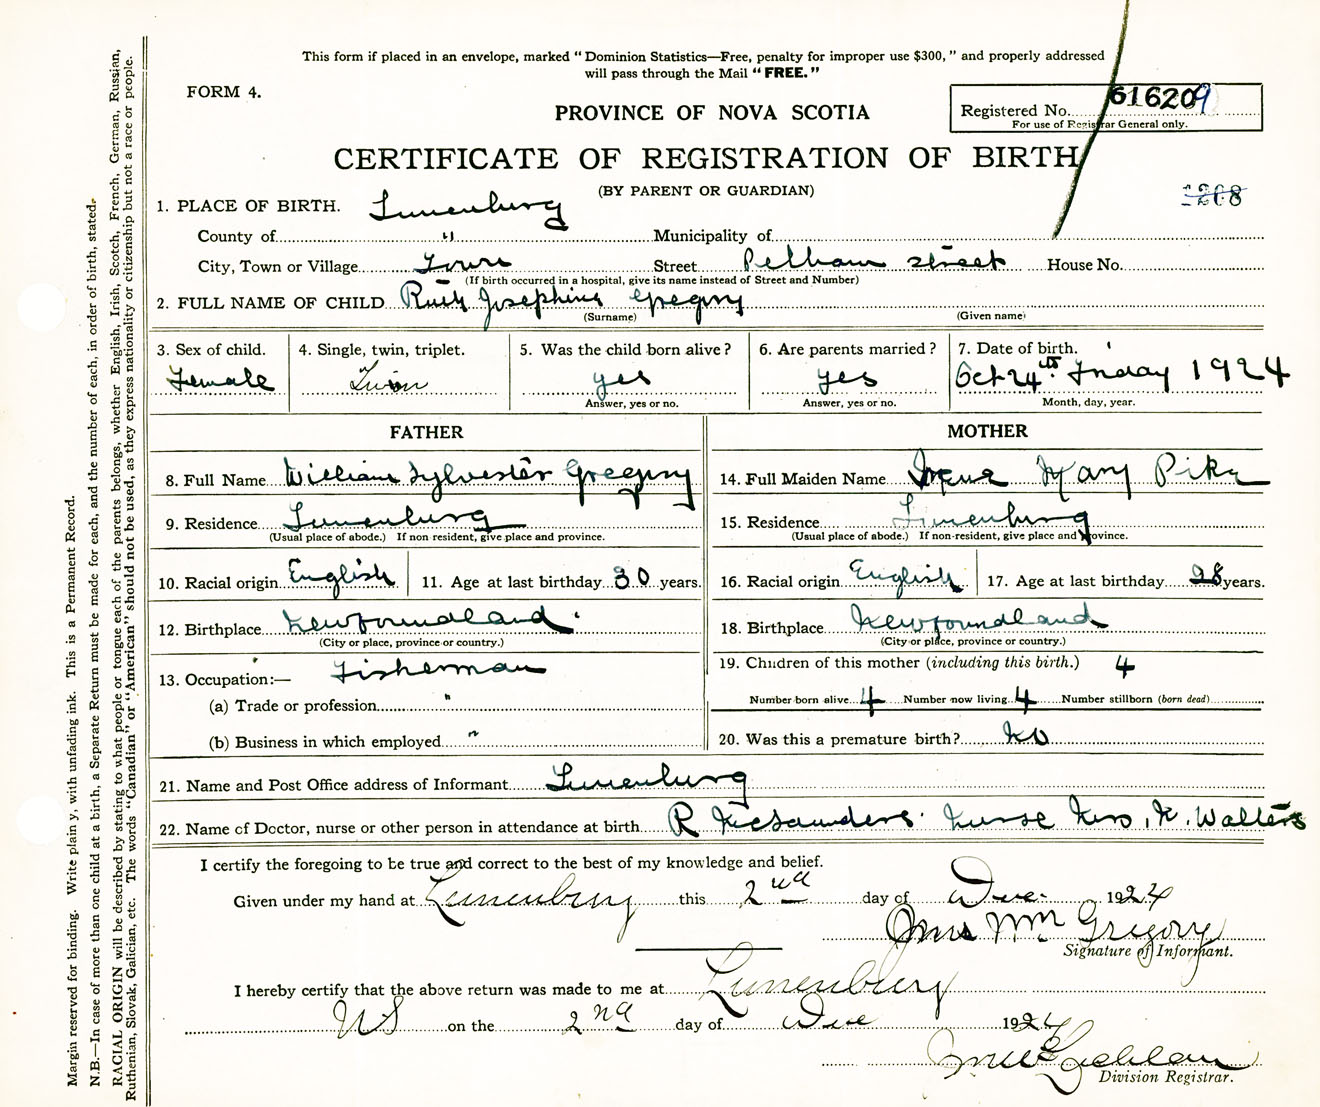 This form if placed in an envelope, marked “Dominion Statistics—Free, penalty for improper use $300,” and properly addressed
will pass through the Mail “FREE.”
FORM 4.
PROVINCE OF NOVA SCOTIA
Registered No. 616209
For use of Registrar General only.
CERTIFICATE OF REGISTRATION OF BIRTH
(BY PARENT OR GUARDIAN)
1208
1. PLACE OF BIRTH. Lunenburg
County of " Municipality of
City, Town or Village Town Street Pelham Street House No.
(If birth occurred in a hospital, give its name instead of Street and Number)
2. FULL NAME OF CHILD Ruth Josephine Gregory
(Surname) (Given name)
3. Sex of child. 4. Single, twin, triplet. 5. Was the child born alive? 6. Are parents married? 7. Date of birth.
Female Twin yes yes Oct 24th Friday 1924
Answer, yes or no. Answer, yes or no. Month, day, year.
FATHER MOTHER
8. Full Name William Sylvester Gregory 14. Full Maiden Name Irene Mary Pike
9. Residence Lunenburg 15. Residence Lunenburg
(Usual place of abode.) If non resident, give place and province. (Usual place of abode.) If non-resident, give place and province.
10. Racial origin English 11. Age at last birthday 30 years. 16. Racial origin English 17. Age at last birthday 28 years.
12. Birthplace Newfoundland 18. Birthplace Newfoundland
(City or place, province or country.) (City or place, province or country.)
13. Occupation:— Fisherman 19. Children of this mother (including this birth.) 4
(a) Trade or profession " Number born alive 4 Number now living 4 Number stillborn (born dead)
(b) Business in which employed " 20. Was this a premature birth? No
21. Name and Post Office address of Informant Lunenburg
22. Name of Doctor, nurse or other person in attendance at birth R Nurse Mrs. Walters
I certify the foregoing to be true and correct to the best of my knowledge and belief.
Given under my hand at Lunenburg this 2nd day of Dec 1924
Mrs Wm Gregory
Signature of Informant.
I hereby certify that the above return was made to me at Lunenburg
NS on the 2nd day of Dec 1924
Division Registrar.
Margin reserved for binding. Write plainly, with unfading ink. This is a Permanent Record.
N.B.—In case of more than one child at a birth, a Separate Return must be made for each, and the number of each, in order of birth, stated.
RACIAL ORIGIN will be described by stating to what people or tongue each of the parents belongs, whether English, Irish, Scotch, French, German, Russian,
Ruthenian, Slovak, Galician, etc. The words “Canadian” or “American” should not be used, as they express nationality or citizenship but not a race or people.